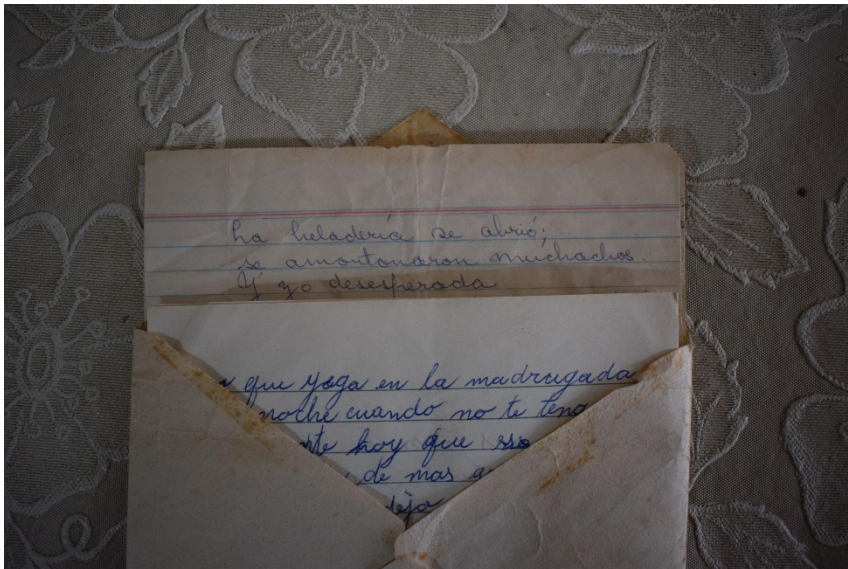 La heladería se abrió;
se amontonaron muchachos.
Y yo desesperada
que yaga en la madrugada
noche cuando no te
hoy que
de mas
dejo